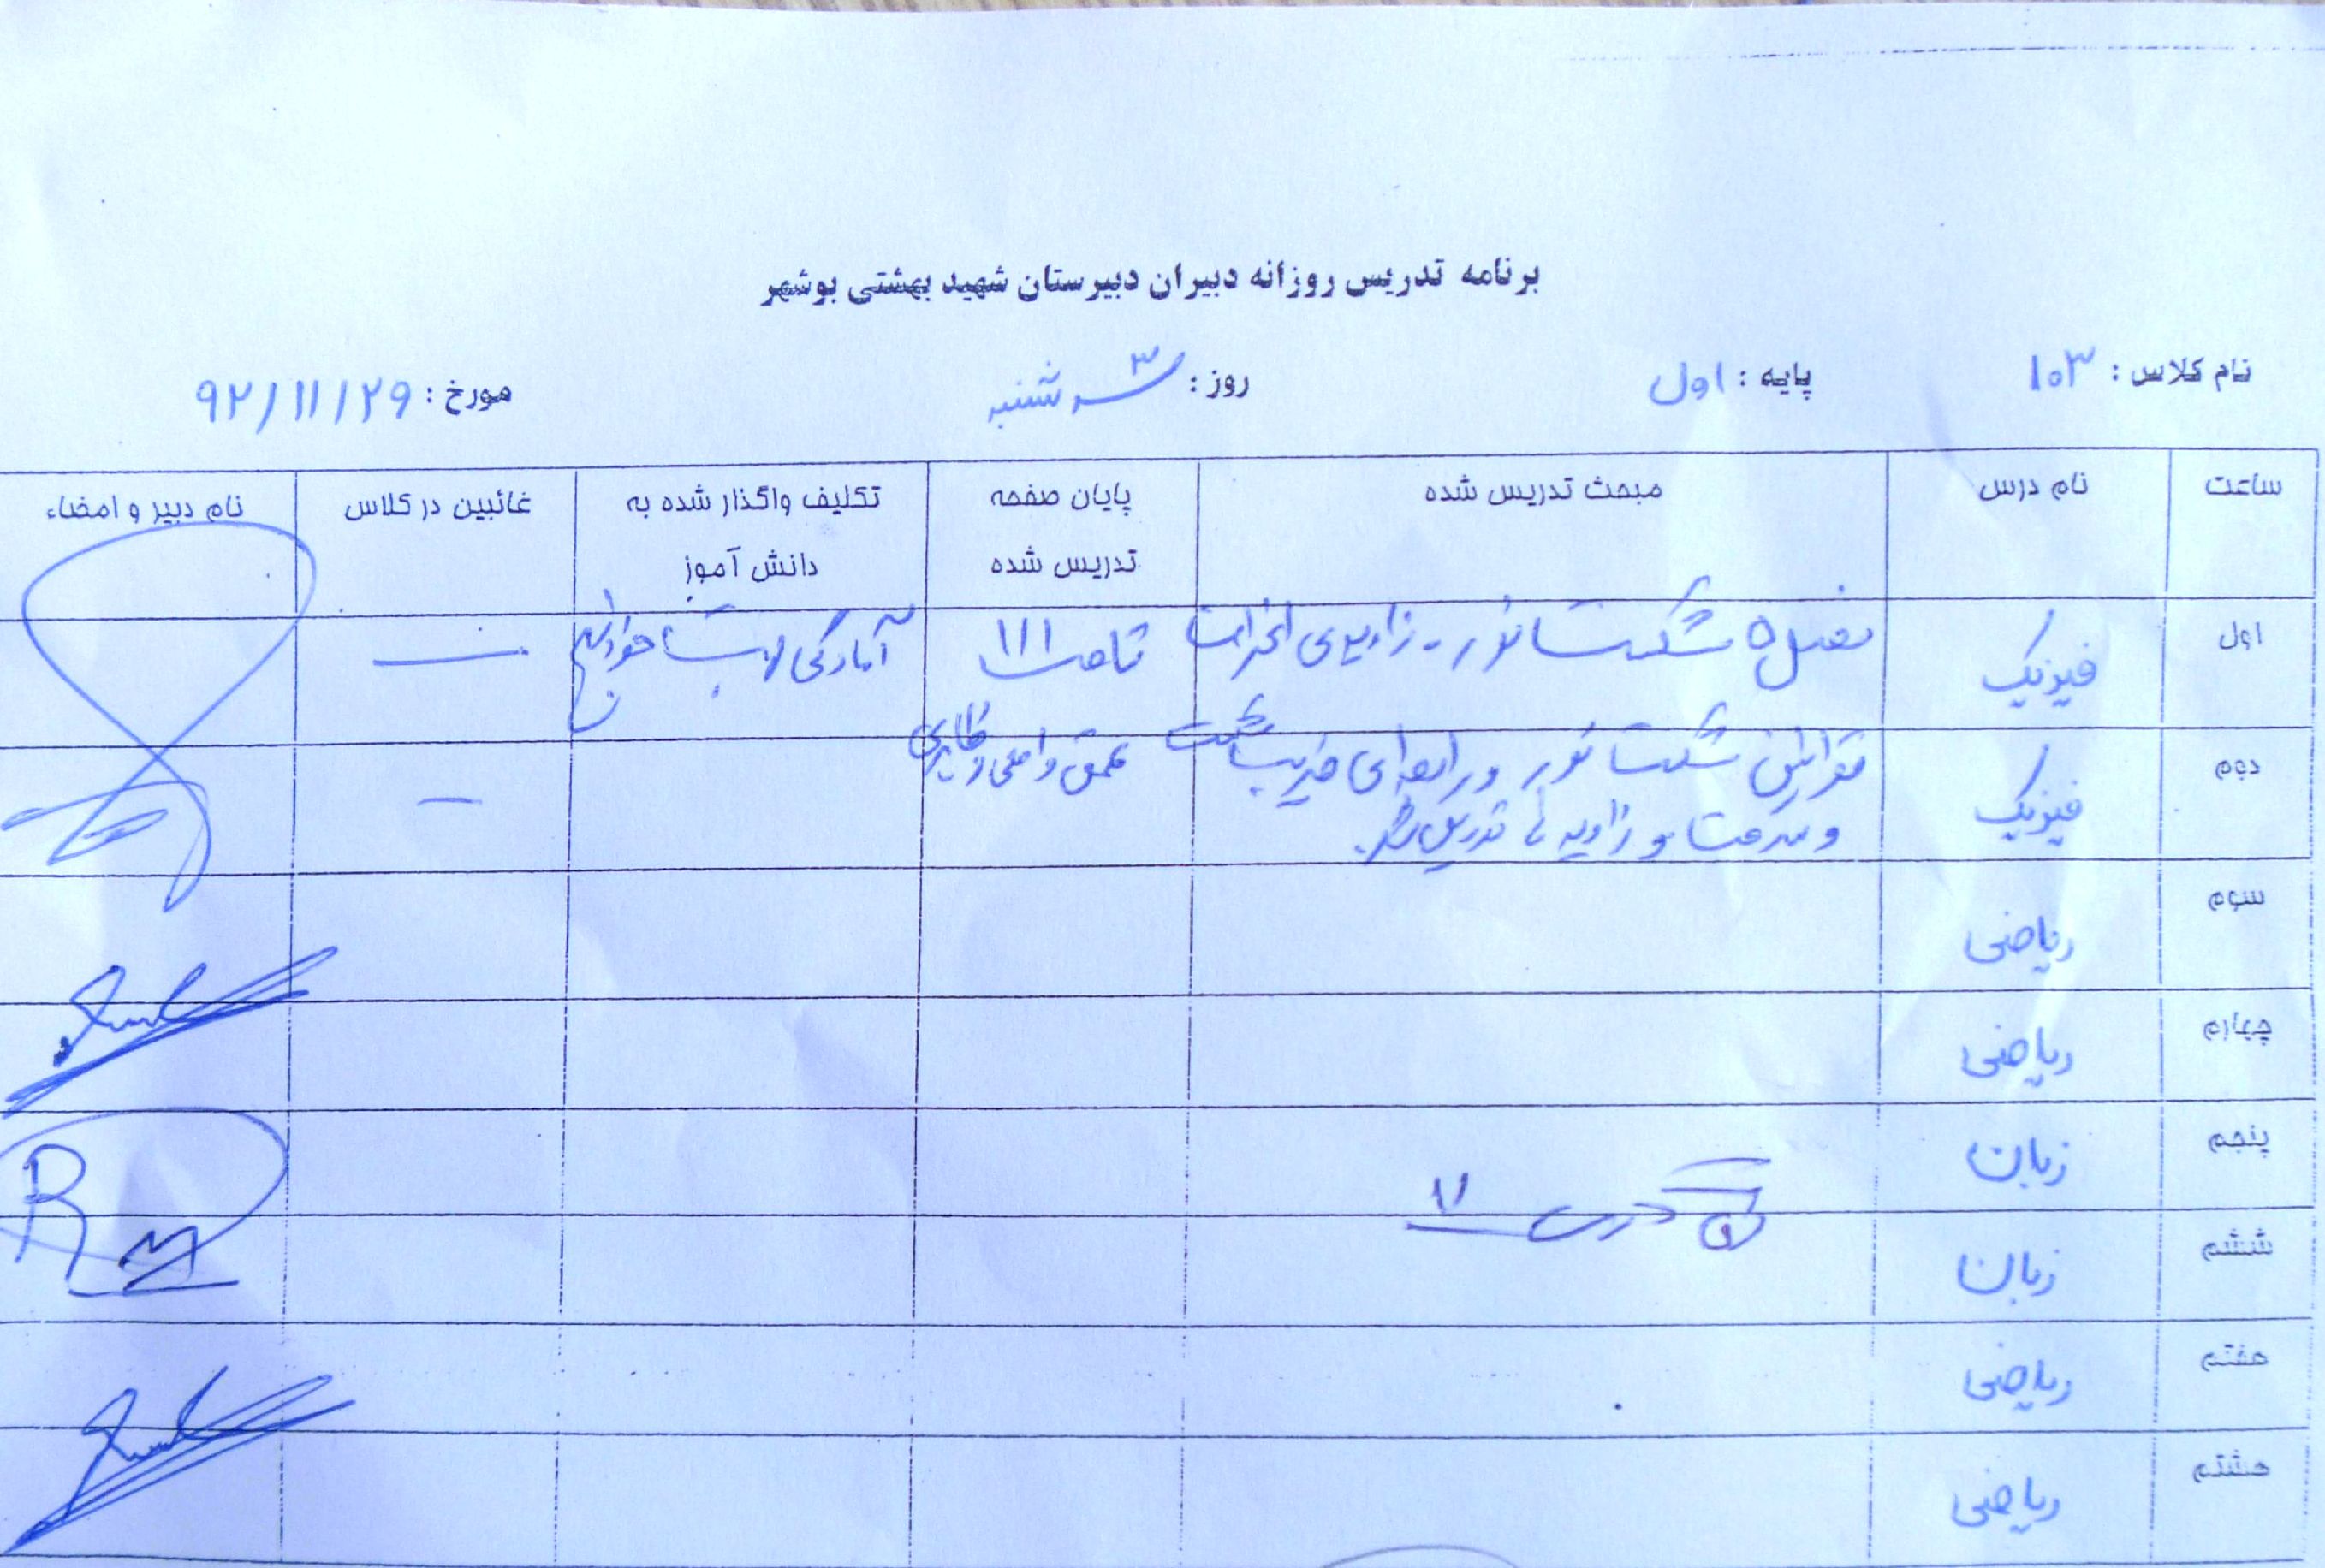 برنامه تدریس روزانه دبیران دبیرستان شهید بهشتی بوشهر
نام کلاس : ۱۰۳ پایه : اول روز : ۳ سه شنبه مورخ : ۹۲/۱۱/۲۹
ساعت نام درس مبحث تدریس شده پایان صفحه تدریس شده تکلیف واگذار شده به دانش آموز غائبین در کلاس نام دبیر و امضاء
اول فیزیک فصل ۵ شکست نور - زاویه‌ی انحراف تا ص ۱۱۱ آمادگی
دوم فیزیک قوانین شکست نور و رابطه‌ی ضریب شکست عمق واقعی و ظاهری —
و سرعت و زاویه ها تدریس شد.
سوم ریاضی
چهارم ریاضی
پنجم زبان
درس ۱۱
ششم زبان
هفتم ریاضی
هشتم ریاضی